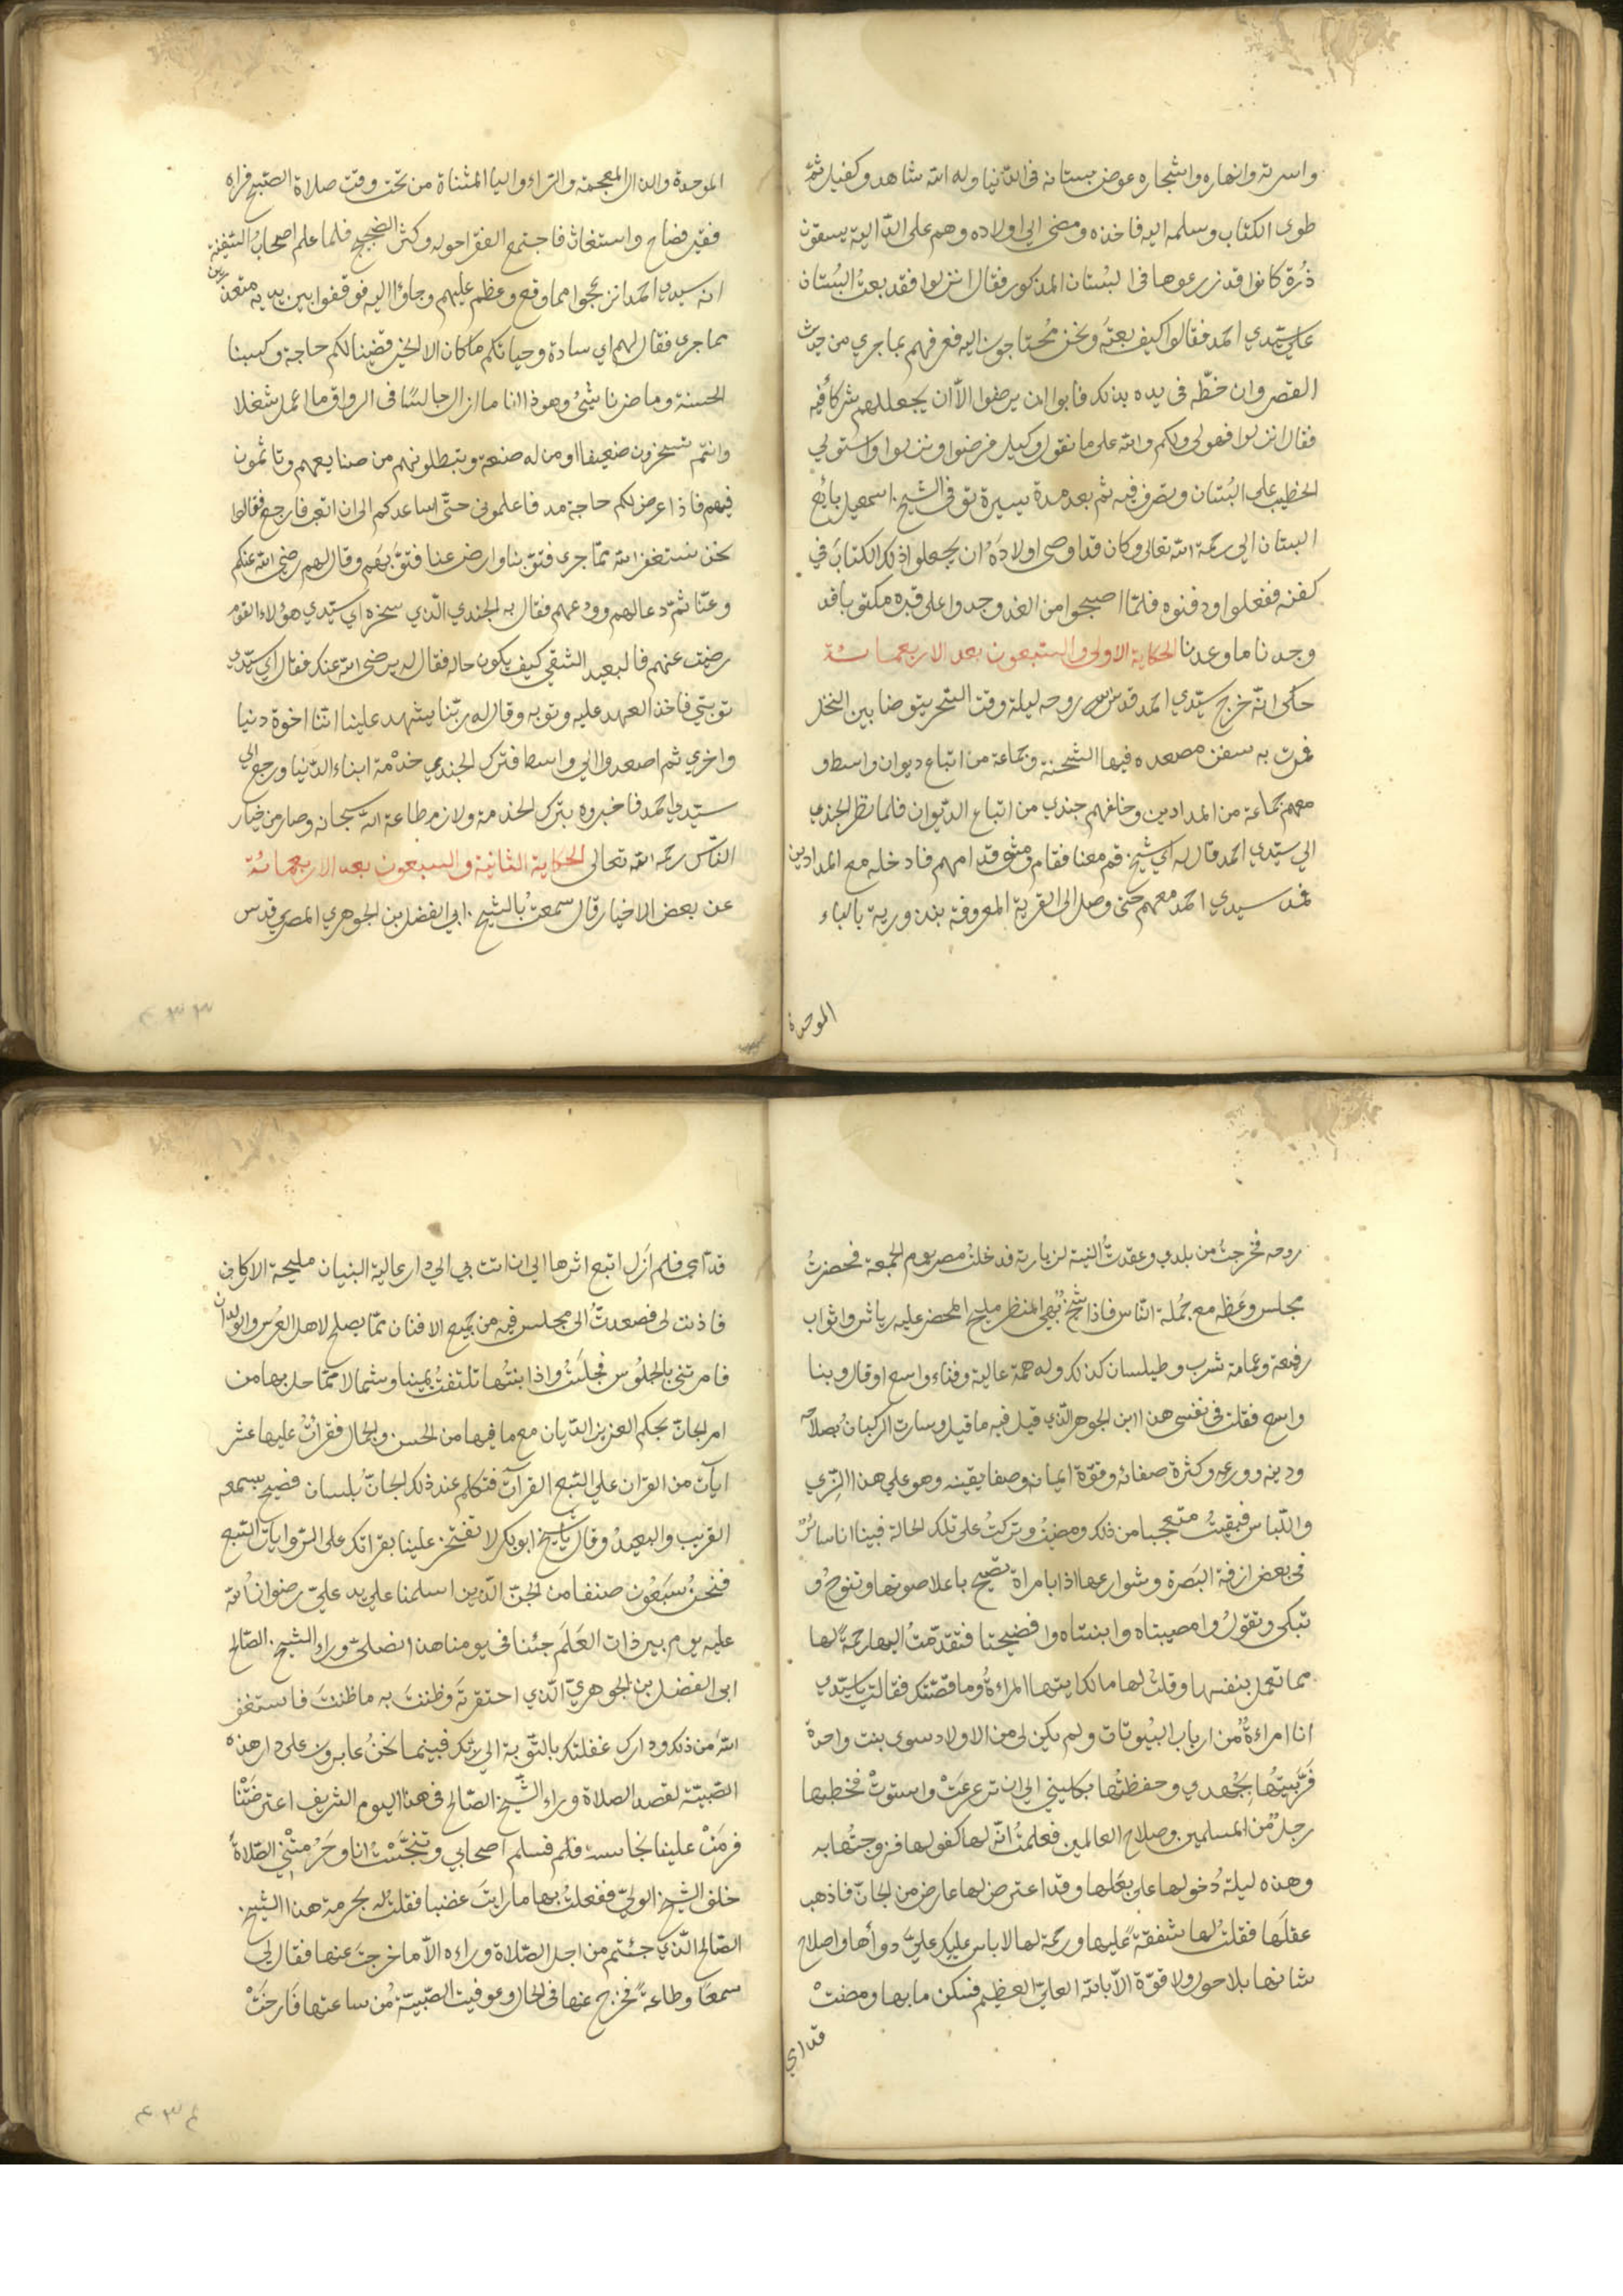 واسرته وانهاره واشجاره عوض بستانه فى الدنيا وله الله شاهد وكفيل ثم
طوى الكتاب وسلمه اليه فاخذه ومضى الى اولاده وهم على الدالية يسقون
ذُرة كانوا قد زرعوها فى البُستان المذكور فقال انزلوا فقد بعتُ البُستان
على سيّدي احمد فقالوا كيف بعتَه ونحن مُحتاجون اليه فعرفهم بما جرى من حديث
القصر وان خطّه فى يده بذلك فابوا ان يرضوا الّا ان يجعللهم شركاً فيه
فقال انزلوا فهو لى ولكم والله على ما نقول وكيل فرضوا ونزلوا واستولى
الخطيب على البُستان وتصرف فيه ثم بعد مدة يسيرة توفى الشيخ اسمعيل بائع
البستان الى رحمة الله تعالى وكان قد اوصى اولادَه ان يجعلوا ذلك الكتابَ فى
كفنه ففعلوا ودفنوه فلمّا اصبحوا من الغد وجدوا على قبره مكتوبا قد
وجدنا ما وعدنا الحكاية الاولى والسبعون بعد الاربعمائة
حكى انّه خرج سيّدي احمد قدس سره روحه ليلة وقت السّحر يتوضا بين النخل
فمرت به سفن مصعده فيها الشحنة وجماعة من اتباع ديوان واسط و
معهم جماعة من المدادين وخلفهم جندي من اتباع الدّيوان فلما نظر الجندي
الى سيّدي احمد قال له اي شيخ قم معنا فقام ومشى قدامهم فادخله مع المدادين
فمد سيدي احمد معهم حتى وصل الى القرية المعروفة بندورية بالباء
الموحدة
الموحدة والدال المعجمة والرّاء والياء المثناة من تحت وقت صلاة الصّبح فراه
فقير فصاح واستغاث فاجتمع الفقرا حوله وكثر الضجيج فلما علم اصحابُ السّفينة
انه سيدي احمد انزعجوا مما وقع وعظم عليهم وجاؤا اليه فوقفوا بين يديه متعذرين
مما جرى فقال لهم اي سادة وحياتكم ما كان الا الخير قضينا لكم حاجة وكسبنا
الحسنة وما ضرنا شئ وهوذا انا ما ازال جالسًا فى الرواق ما اعمل شغلا
وانتم تسخرون ضعيفا او من له صنعة وتبطلونهم من صنايعهم وتاثمون
فيهم فاذا عرض لكم حاجة مد فاعلمونى حتّى اساعدكم الى ان اتعب فارجع فقالوا
نحن نستغفر الله ممّا جرى فتوّبنا وارض عنا فتوّبهم وقال لهم رضى الله عنكم
وعنّا ثمّ دعا لهم وودعهم فقال به الجندي الّذي سخره اي سيّدي هؤلاء القوم
رضيت عنهم فالبعيد الشقى كيف يكون حاله فقال له يرضى الله عنك فقال اي سيّدي
توبتى فاخذ العهد عليه وتوبه وقال له ربّنا يشهد علينا انّنا اخوة دنيا
واخرى ثم اصعدوا الى واسط فترك الجندي خدْمة ابناء الدّنيا ورجع الى
سيّدي احمد فاخبروه بترك الخدمة ولازم طاعة الله سبحانه وصار من خيار
النّاس رحمه الله تعالى الحكاية الثانية والسبعون بعد الاربعمائة
عن بعض الاخيار قال سمعتُ بالشيخ ابى الفضل بن الجوهري المصري قدس
٤٣٣
روحه فخرجتُ من بلدي وعقدتُ النية لزيارته فدخلتُ مصر يوم الجمعة فحضرتُ
مجلس وعَظه مع جُملة النّاس فاذا شيخٌ بهى المنظر مليح المحضر عليه رياش واثواب
رفيعة وعمامة شرب وطيلسان كذلك وله همة عالية وفناء واسع او قال وبنا
واسع فقلت فى نفسى هذا ابن الجوهر الّذي قيل فيه ما قيل وسارت الركبان بصلاحه
ودينه وورعه وكثرة صفائه وقوّة ايمانه وصفا يقينه وهو على هذا الزّي
واللّباس فبقيتُ متعجبا من ذلك ومضيتُ وتركتُ على تلك الحالة فبينا انا سائرٌ
فى بعض ازقة البَصَرة وشوارعها اذا بامراة تصيح باعلا صوتها وتنوحُ و
تبكى وتقولُ وامصيبتاه وابنتاه وا فضيحتا فتقدّمتُ اليها رحمةً لها
مما تعمل بنفسها وقلت لها مالك ايتها المراءةُ وما قصّتك فقالت يا سيّدي
انا امراءةٌ من ارباب البيُوتات ولم يكن لى من الاولاد سوى بنت واحدة
فربّيتُها بجُهدي وحفظتُها بكليتى الى ان ترعرعَتْ واستوتْ فخطبها
رجلٌ من المسلمين وصلاح العالمين فعلمتُ انّه لها كفو لها فزوجتُها به
وهذه ليلة دُخولها على بعَلها وقد اعترض لها عارض من الجانّ فاذهب
عقلَها فقلتُ لها شفقةً عليها ورحمة لها لا باس عليك علىَّ دواُها واصلاح
شانها بلا حول ولا قوّة الّا بالله العلىّ العظيم فسكن ما بها ومضتْ
قدامي
قدّامي فلم اَزَل اتبع اثرها الى ان اتت بى الى دار عالية البنيان مليحة الاركان
فاذنت لى فصعدتُ الى مجلس فيه من جميع الافنان ممّا يصلح لاهل العُرس والولدان
فامرتنى بالجلُوس فجلَستُ واذا بنتُها تلتفتُ يمينا وشمالا ممّا حل بها من
امر الجانّ بحكم العزيز الديّان مع ما فيها من الحسن والجمال فقراتُ عليها عشر
اياتٍ من القران على السّبع القراآت فتكلم عند ذلك الجانّ بلسان فصيح يسمعه
القريب والبعيدُ وقال يا شيخ ابو بكر لا تفتخر علينا بقراتك على الرّوايات السّبع
فنحنُ سَبْعُون صنفا من الجنّ الّذين اسلمنا على يد علىّ رضوانُ الله
عليه يوم بير ذات العَلَم جئنا فى يومنا هذا نصلى وراء الشيخ الصّالح
ابى الفضل بن الجوهريّ الّذي احتقرتَه وظننتَ به ما ظننتَ فاستغفر
اللّه من ذلك ودارك غفلتك بالتّوبة الى ربّك فبينما نحنُ عابرون على دار هذه
الصّبيّة لقصد الصلاة وراء الشّيخ الصّالح فى هذا اليوم الشريف اعترضَتْنا
فرمَتْ علينا نجاسة فلم فسلم اصحابي وتنجّسْتُ انا وحَرُمتْنِى الصّلاةُ
خلف الشيخ الولىّ ففعلتُ بها ما رايتَ غضبا فقلتُ له بحرمة هذا الشيخ
الصّالح الّذي جئتم من اجل الصّلاة وراءه الّا ما خرجتَ عنها فقال لى
سمعًا وطاعةً فخرج عنها فى الحال وعوفيت الصّبيّةُ من ساعتها فَارخَتْ
٤٣٤